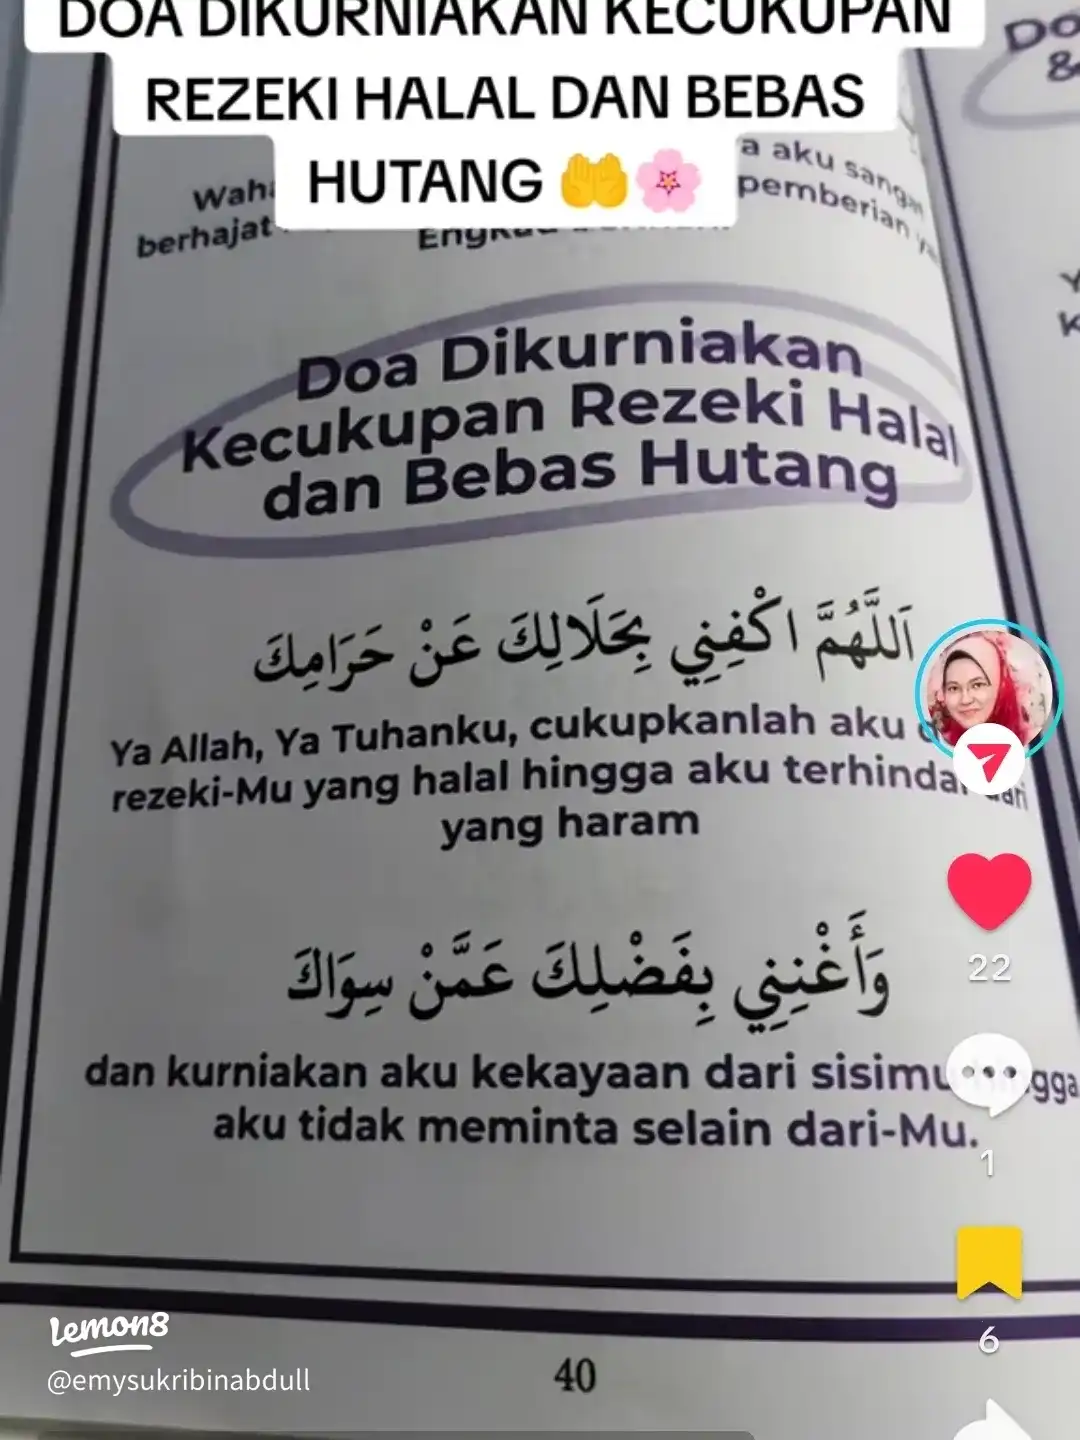 DOA DIKURNIAKAN KECUKUPAN
REZEKI HALAL DAN BEBAS
HUTANG 🤲🌸
Do
&
a aku sangat
berhajat
pemberian
Doa Dikurniakan
Kecukupan Rezeki Halal
dan Bebas Hutang
اَللَّهُمَّ اكْفِنِي بِحَلَالِكَ عَنْ حَرَامِكَ
Ya Allah, Ya Tuhanku, cukupkanlah aku
rezeki-Mu yang halal hingga aku terhindar dari
yang haram
وَأَغْنِنِي بِفَضْلِكَ عَمَّنْ سِوَاكَ
dan kurniakan aku kekayaan dari sisimu hingga
aku tidak meminta selain dari-Mu.
22
1
6
Lemon8
@emysukribinabdull
40